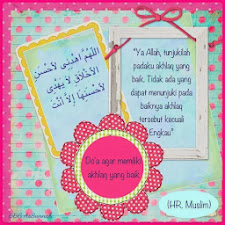 اللهم اهدني لأحسن
الأخلاق لا يهدي
لأحسنها إلا أنت
"Ya Allah, tunjukilah
padaku akhlaq yang
baik, Tidak ada yang
dapat menunjuki pada
baiknya akhlaq
tersebut kecuali
Engkau"
Do'a agar memiliki
akhlaq yang baik
(HR. Muslim)